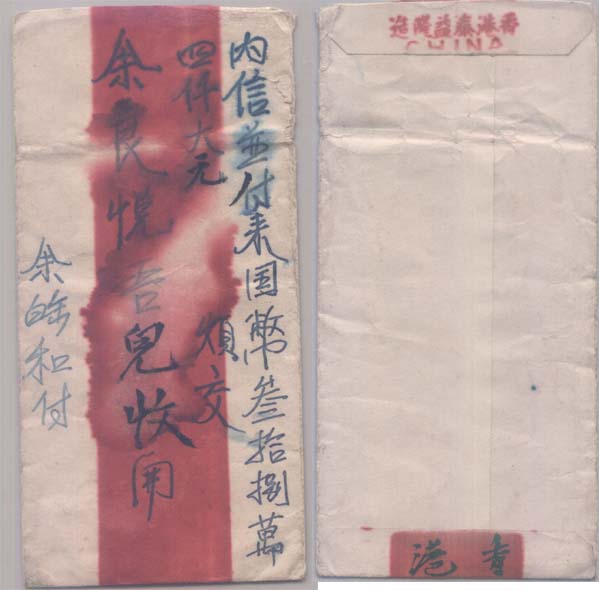 內信並付來国幣叁拾捌萬
四仟大元 煩交
余良悦吾兒收開
余和付
香港泰益隆造
CHINA
香港